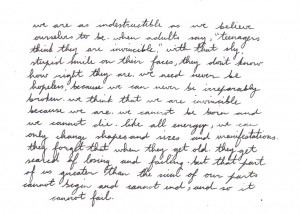 we are as indestructible as we believe
ourselves to be. when adults say, "teenagers
think they are invincible," with that sly,
stupid smile on their faces, they don't know
how right they are. we need never be
hopeless, because we can never be irreparably
broken. we think that we are invincible
because we are. we cannot be born and
we cannot die. like all energy, we can
only change shapes and sizes and manifestations.
they forget that when they get old. they get
scared of losing and failing. but that part
of us greater than the sum of our parts
cannot begin and cannot end, and so it
cannot fail.